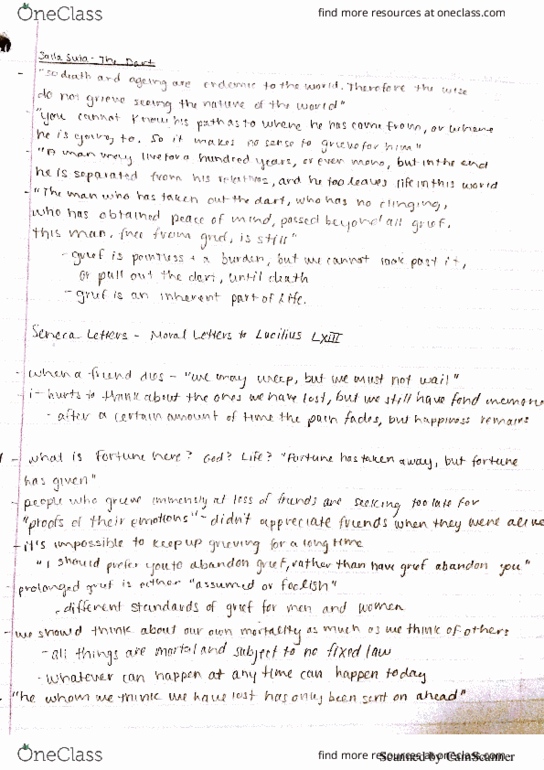 OneClass
find more resources at oneclass.com
Salla Sutta - The Dart
- "so death and ageing are endemic to the world. Therefore the wise
do not grieve seeing the nature of the world"
- "you cannot know his path as to where he has come from, or where
he is going to. So it makes no sense to grieve for him"
- "A man may live for a hundred years, or even more, but in the end
he is separated from his relatives, and he too leaves life in this world
- "The man who has taken out the dart, who has no clinging,
who has obtained peace of mind, passed beyond all grief,
this man, free from grief, is still"
- grief is pointless + a burden, but we cannot look past it,
or pull out the dart, until death
- grief is an inherent part of life.
Seneca Letters - Moral Letters to Lucilius LXIII
- when a friend dies - "we may weep, but we must not wail"
- it hurts to think about the ones we have lost, but we still have fond memorie
- after a certain amount of time the pain fades, but happiness remains
- what is Fortune here? God? Life? "Fortune has taken away, but fortune
has given"
- people who grieve immensely at loss of friends are seeking too late for
"proofs of their emotions" - didn't appreciate friends when they were alive
- it's impossible to keep up grieving for a long time
"I should prefer you to abandon grief, rather than have grief abandon you"
- prolonged grief is either "assumed or foolish"
- different standards of grief for men and women
- we should think about our own mortality as much as we think of others
- all things are mortal and subject to no fixed law
- whatever can happen at any time can happen today
- "he whom we think we have lost has only been sent on ahead"
OneClass
find more resources at oneclass.com
Scanned by CamScanner